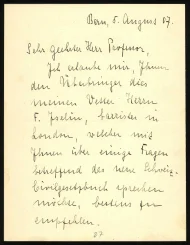 Bern, 5. August 07.
Sehr geehrter Herr Professor,
Ich erlaube mir, Ihnen
den Überbringer dies
meinen Vetter Herrn
F. Iselin, barrister in
London, welcher mit
Ihnen über einige Fragen
betreffend das neue Schweiz.
Civilgesetzbuch sprechen
möchte, bestens zu
empfehlen.
07